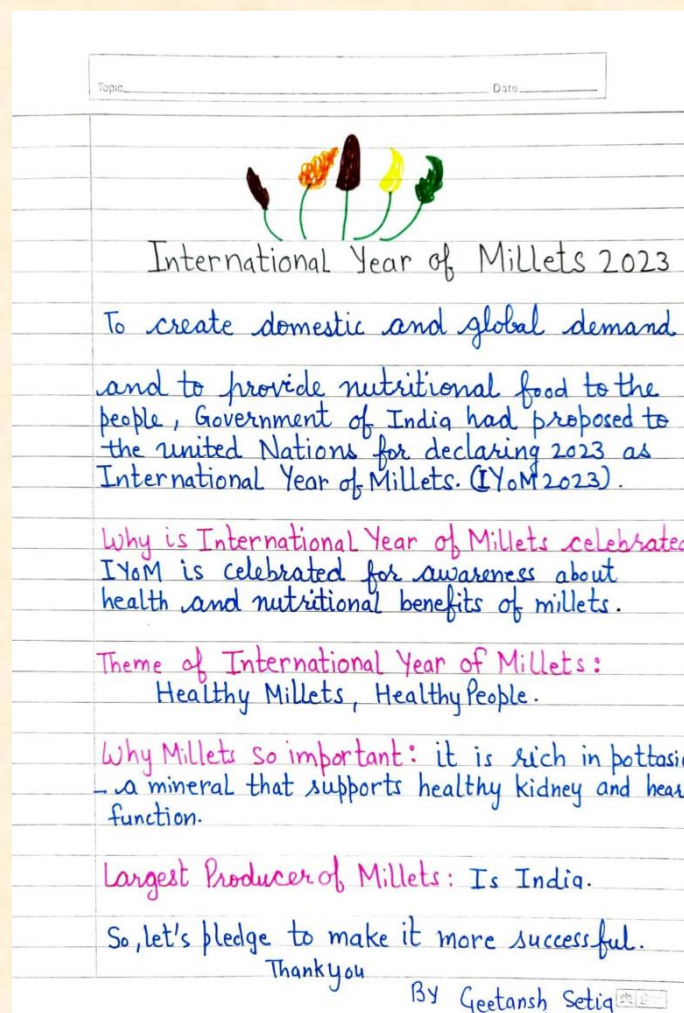 Topic Date
International Year of Millets 2023
To create domestic and global demand
and to provide nutritional food to the
people, Government of India had proposed to
the united Nations for declaring 2023 as
International Year of Millets. (IYoM2023).
Why is International Year of Millets celebrated
IYoM is celebrated for awareness about
health and nutritional benefits of millets.
Theme of International Year of Millets:
Healthy Millets, Healthy People.
Why Millets so important: it is rich in pottasi
- a mineral that supports healthy kidney and hear
function.
Largest Producer of Millets: Is India.
So, let's pledge to make it more successful.
Thankyou
By Geetansh Setia